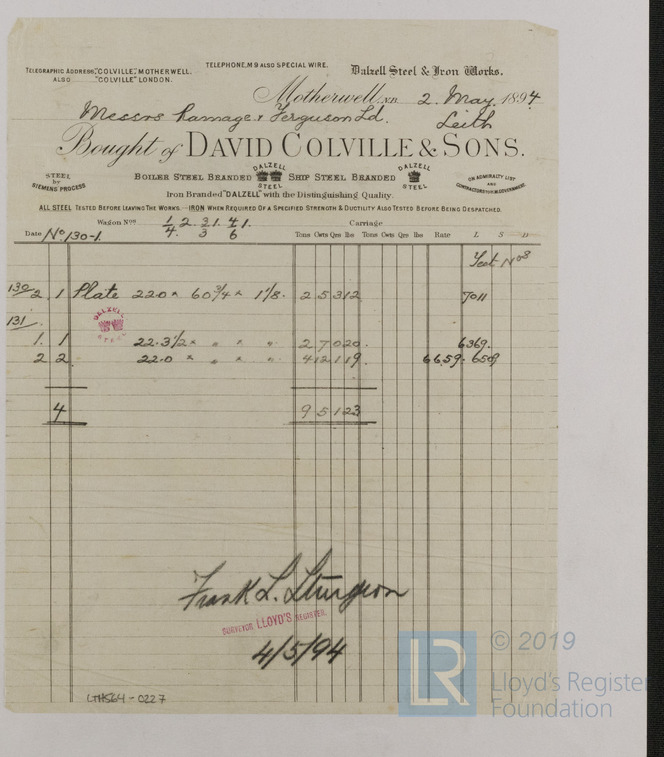 TELEGRAPHIC ADDRESS, "COLVILLE", MOTHERWELL.
ALSO "COLVILLE" LONDON.
TELEPHONE, Nº 9 ALSO SPECIAL WIRE.
Dalzell Steel & Iron Works.
Motherwell, 2. May. 1894
Messrs Ramage & Ferguson Ld. Leith
Bought of DAVID COLVILLE & SONS.
STEEL BY SIEMENS PROCESS
BOILER STEEL BRANDED DALZELL STEEL SHIP STEEL BRANDED DALZELL STEEL
ON ADMIRALTY LIST AND CONTRACTORS FOR H.M. GOVERNMENT.
Iron Branded "DALZELL" with the Distinguishing Quality.
ALL STEEL TESTED BEFORE LEAVING THE WORKS. — IRON WHEN REQUIRED OF A SPECIFIED STRENGTH & DUCTILITY ALSO TESTED BEFORE BEING DESPATCHED.
Wagon Nos 1/4 2 31/3 41/6 Carriage
Date Nº 130-1. Tons Cwts Qrs lbs Tons Cwts Qrs lbs Rate L S D
Test Nos
130/2 1 Plate 22.0 × 60 3/4 × 1 1/8. 2 5 3 12 7011
DALZELL STEEL
131/
1. 1 22.3 1/2 × " × " 2 7 0 20. 6369.
2 2 22.0 × " × " 4 12 1 19 6659. 6509
4 9 5 1 23
Frank L. Sturgeon
SURVEYOR LLOYD'S REGISTER.
4/5/94
LTHS64-0227
LR
© 2019
Lloyd's Register
Foundation